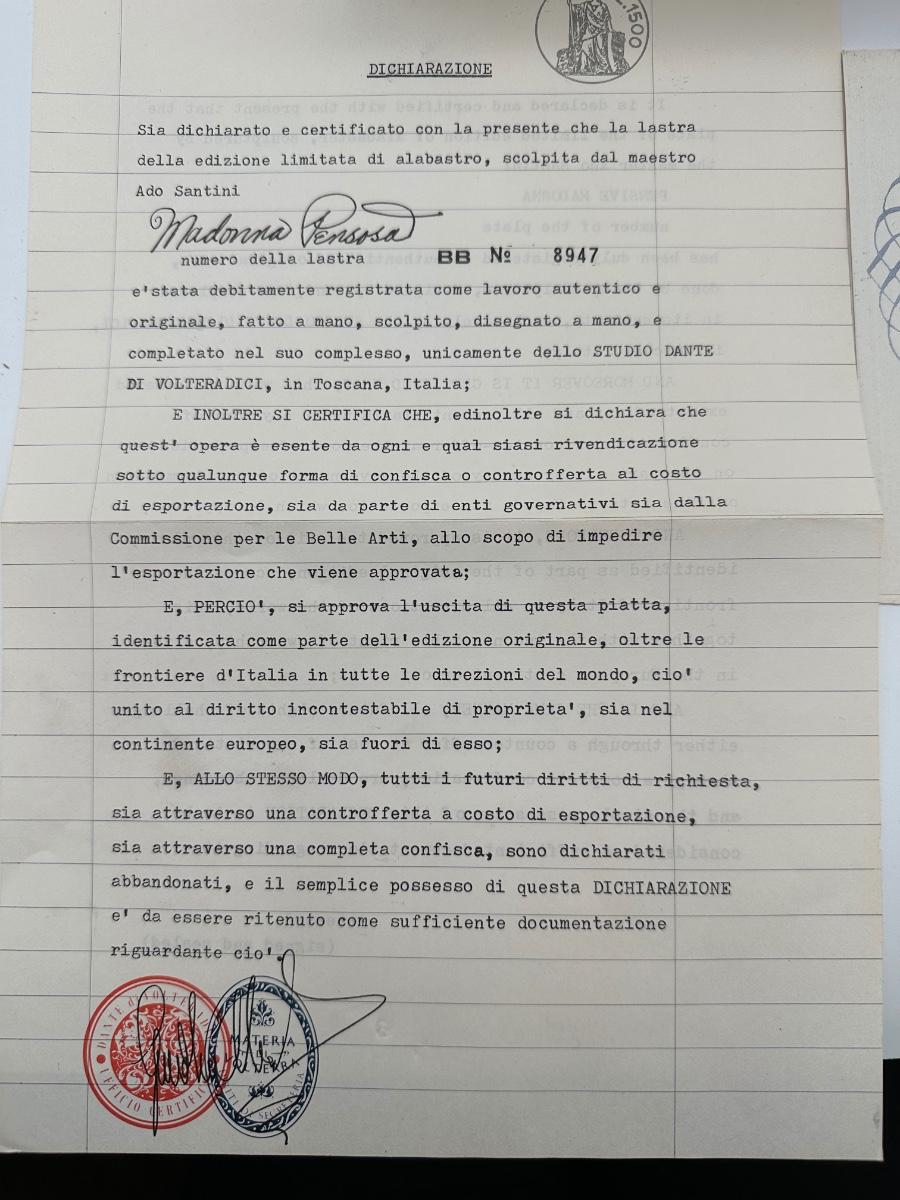 L.1500
DICHIARAZIONE
Sia dichiarato e certificato con la presente che la lastra
della edizione limitata di alabastro, scolpita dal maestro
Ado Santini
Madonna Pensosa
numero della lastra BB Nº 8947
e'stata debitamente registrata come lavoro autentico e
originale, fatto a mano, scolpito, disegnato a mano, e
completato nel suo complesso, unicamente dello STUDIO DANTE
DI VOLTERADICI, in Toscana, Italia;
E INOLTRE SI CERTIFICA CHE, edinoltre si dichiara che
quest' opera è esente da ogni e qual siasi rivendicazione
sotto qualunque forma di confisca o controfferta al costo
di esportazione, sia da parte di enti governativi sia dalla
Commissione per le Belle Arti, allo scopo di impedire
l'esportazione che viene approvata;
E, PERCIO', si approva l'uscita di questa piatta,
identificata come parte dell'edizione originale, oltre le
frontiere d'Italia in tutte le direzioni del mondo, cio'
unito al diritto incontestabile di proprieta', sia nel
continente europeo, sia fuori di esso;
E, ALLO STESSO MODO, tutti i futuri diritti di richiesta,
sia attraverso una controfferta a costo di esportazione,
sia attraverso una completa confisca, sono dichiarati
abbandonati, e il semplice possesso di questa DICHIARAZIONE
e' da essere ritenuto come sufficiente documentazione
riguardante cio'.
DANTE di
UFFICIO
MATERIA
DI